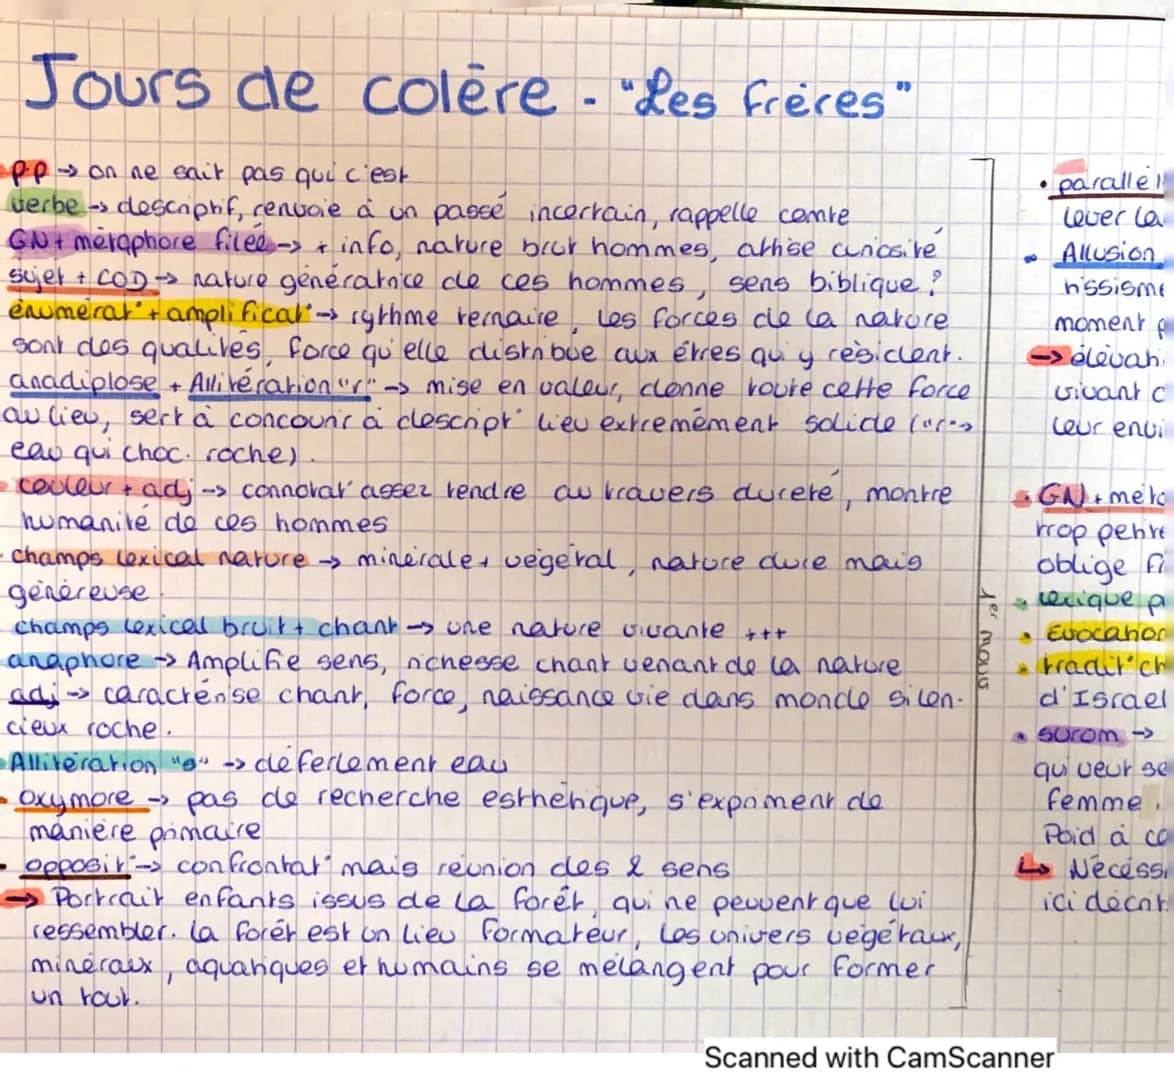 Jours de colère - "Les frères"
p.p → on ne sait pas qui c'est
verbe → descriptif, renvoie à un passé incertain, rappelle conte
GN + métaphore filée → + info, nature brut hommes, attise curiosité
sujet + COD → nature génératrice de ces hommes, sens biblique?
énumérat° + amplificat° → rythme ternaire, les forces de la nature
sont des qualités, force qu'elle distribue aux êtres qui y résident.
anadiplose + Allitération "r" → mise en valeur, donne toute cette force
au lieu, sert à concourir à descript° lieu extremément solide ("r" →
eau qui choc. roche).
couleur + adj → connotat° assez tendre au travers dureté, montre
humanité de ces hommes
champs lexical nature → minérale + végétal, nature dure mais
généreuse.
champs lexical bruit + chant → une nature vivante +++
anaphore → Amplifie sens, richesse chant venant de la nature
adj → caractérise chant, force, naissance vie dans monde silen-
cieux roche.
Allitération "s" → déferlement eau
Oxymore → pas de recherche esthétique, s'expriment de
manière primaire
opposit° → confrontat° mais réunion des 2 sens
→ Portrait enfants issus de la forêt, qui ne peuvent que lui
ressembler. la forêt est un lieu formateur, les univers végétaux,
minéraux, aquatiques et humains se mélangent pour former
un tout.
1er mouv
• parallél
lever la
• Allusion
nissisme
moment p
→ élévati
vivant d
leur envi
• GN + méta
trop petite
oblige fi
• lexique p
• Evocation
• tradit° ch
d'Israel
• surom →
qui veut se
femme.
Poid à ce
↳ Nécéss
ici décrit
Scanned with CamScanner